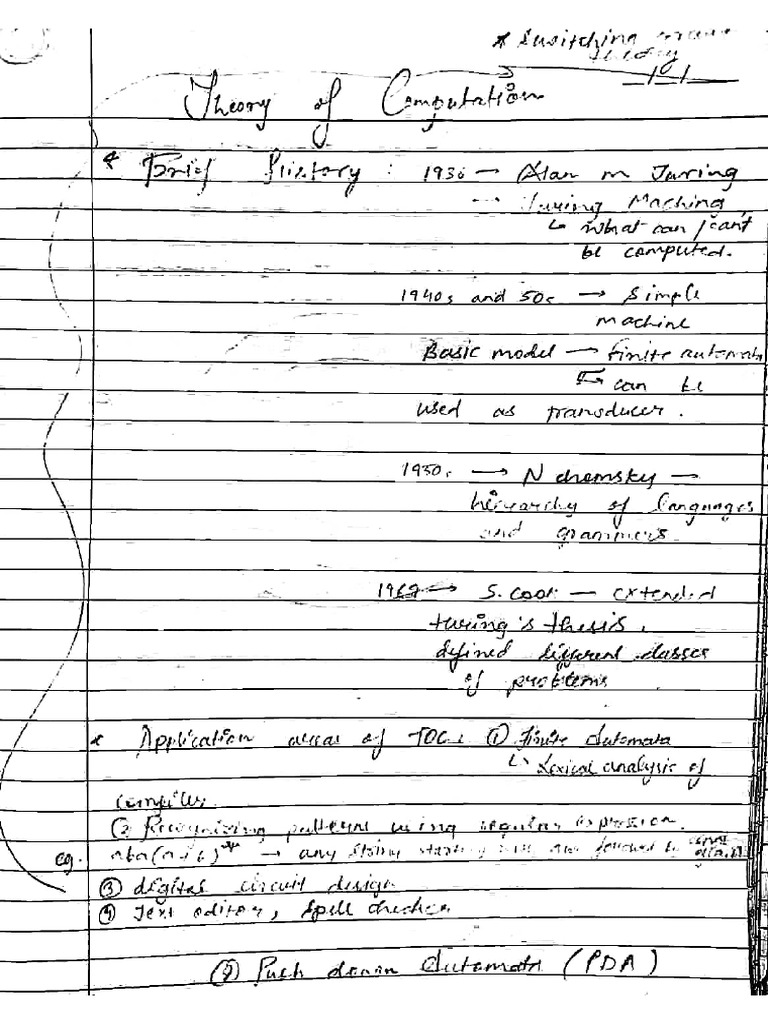 * Switching
theory
Theory of Computation
* Brief History : 1936 → Alan m Turing
→ Turing Maching
↳ What can / can't
be computed.
1940s and 50s → Simple
machine
Basic model → finite automata
↳ can be
used as transducer.
1950s → N chomsky →
hierarchy of languages
and grammers.
→ S. cook — extended
turing's thesis.
defined different classes
of problems
* Application areas of TOC : ① finite Automata
↳ Lexical analysis of
compiler.
② Recognizing patterns using regular expression.
eg. aba(a+b)* → any string starting with aba followed by
③ digital circuit design
④ Text editor, spell checker
② Push down Automata (PDA)